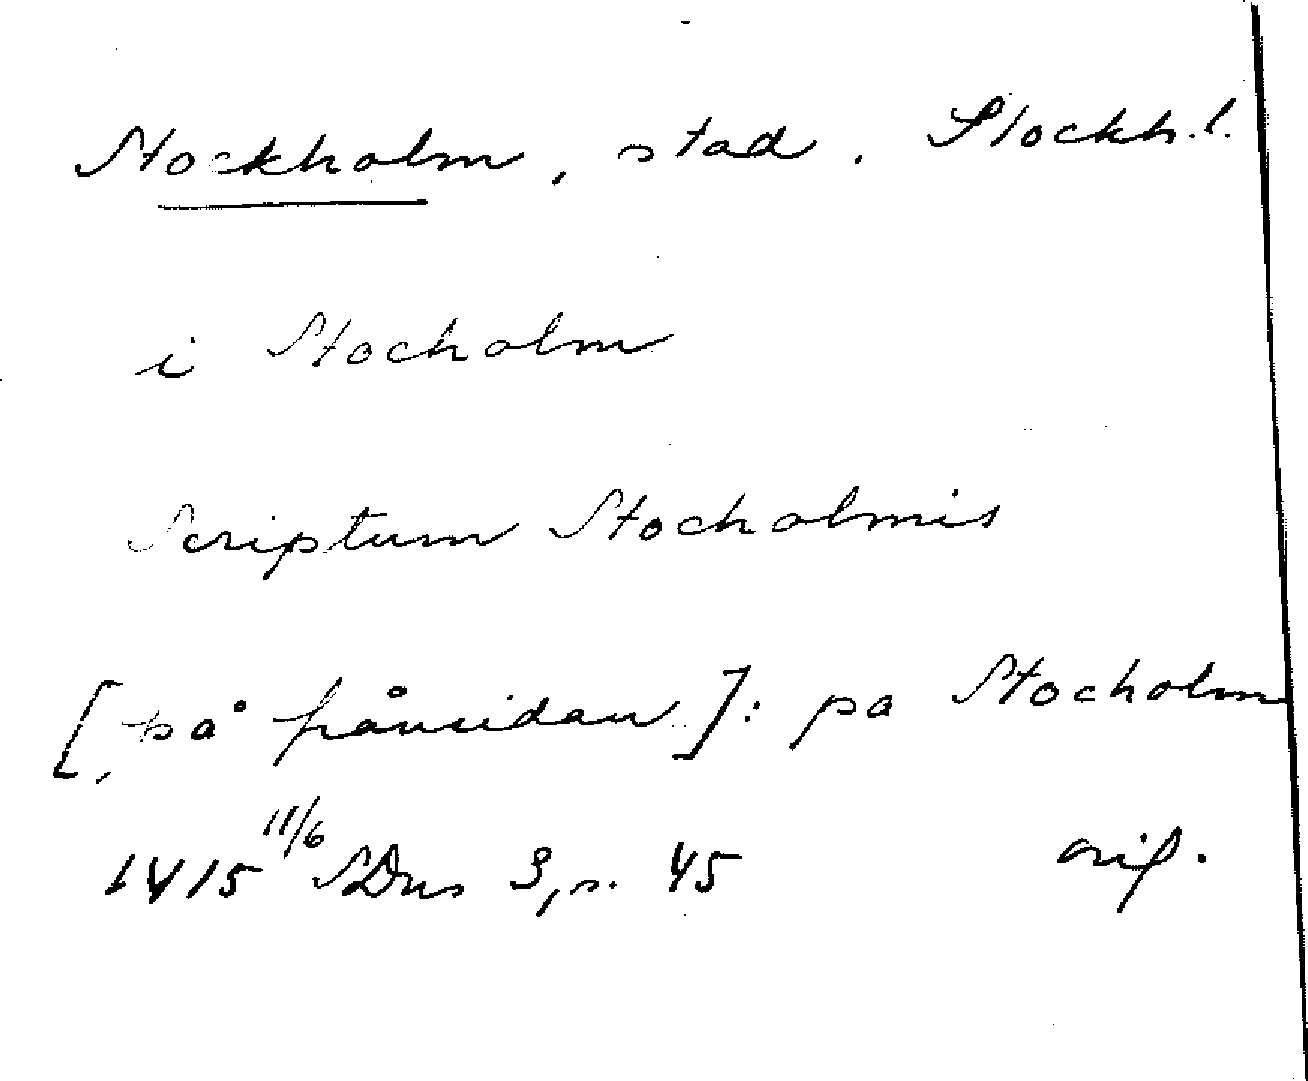 Stockholm, stad. Stockh. l.
i Stocholm
Scriptum Stocholmis
[på frånsidan]: pa Stocholm
1415 11/6 SDns 3, s. 45 orig.